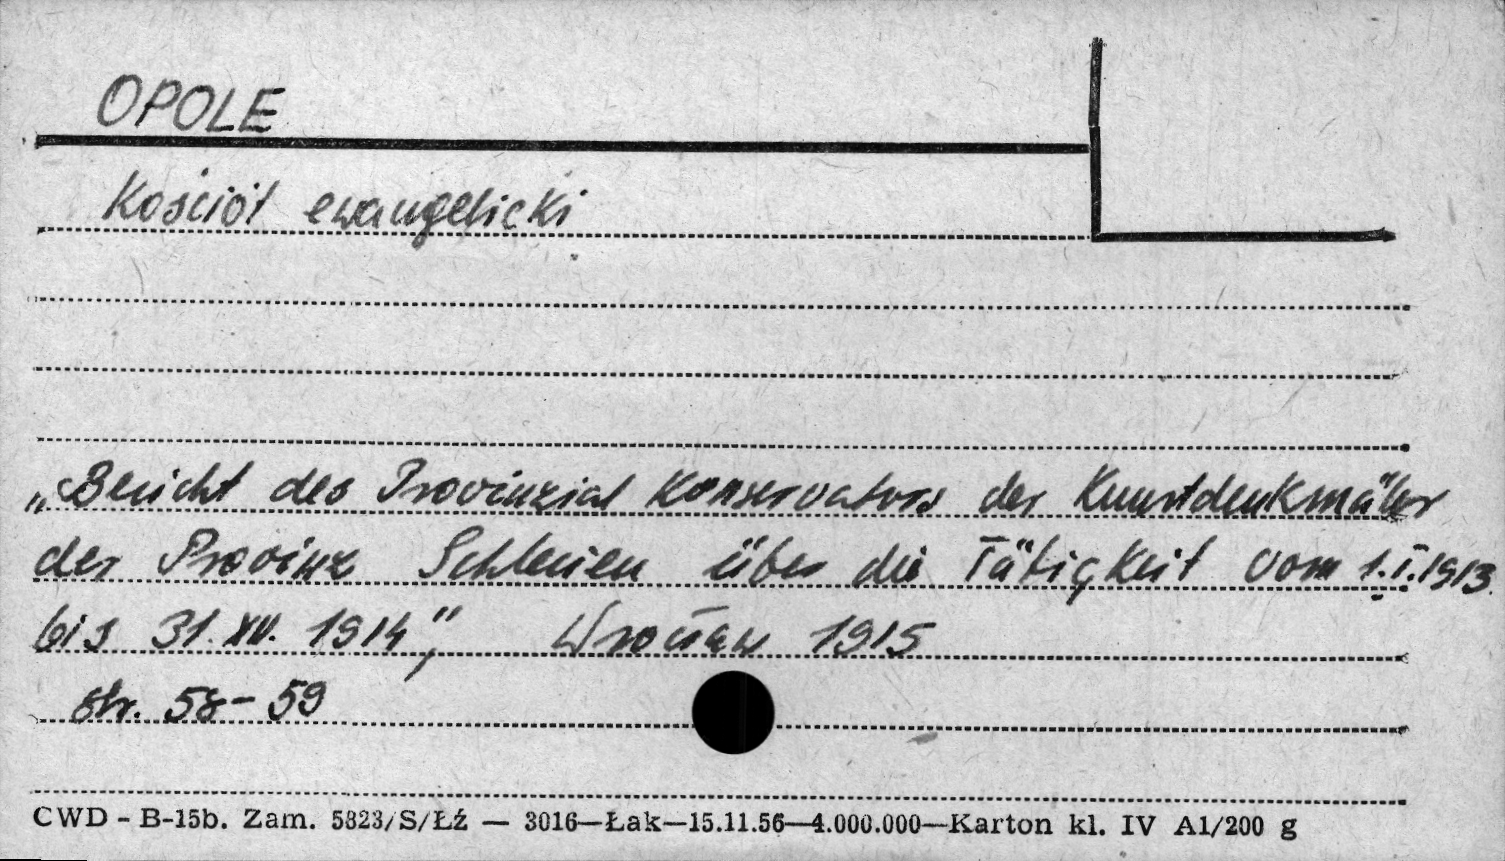 OPOLE
Kościół ewangelicki
„Bericht des Provinzial Konservators der Kunstdenkmäler
der Provinz Schlesien über die Tätigkeit vom 1.I.1913
bis 31.XII.1914", Wrocław 1915
str. 58-59
CWD - B-15b. Zam. 5823/S/Łź — 3016—Łak—15.11.56—4.000.000—Karton kl. IV A1/200 g